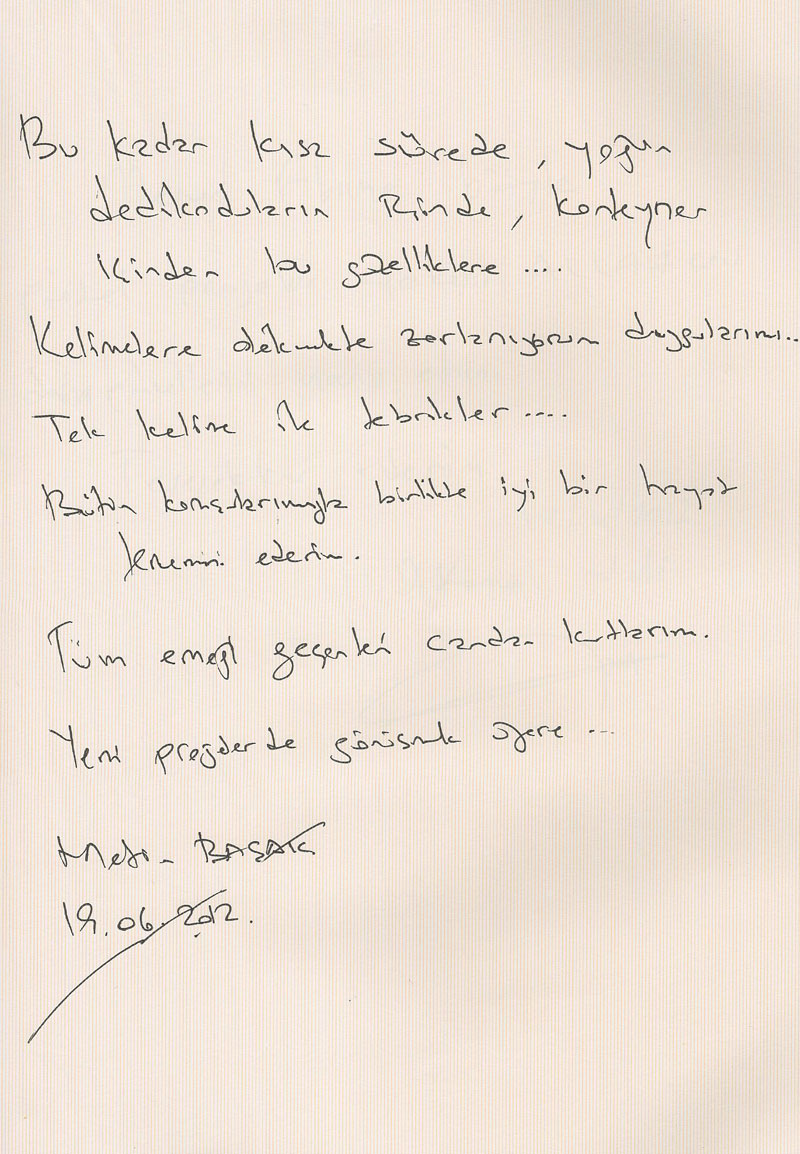 Bu kadar kısa sürede, yoğun
dedikoduların içinde, konteyner
içinden bu güzelliklere ....
Kelimelere dökmekte zorlanıyorum duygularımı..
Tek kelime ile tebrikler ....
Bütün komşularımızla birlikte iyi bir hayat
temenni ederim.
Tüm emeği geçenleri candan kutlarım.
Yeni projelerde görüşmek üzere ...
Metin BAŞAK
19.06.2012.